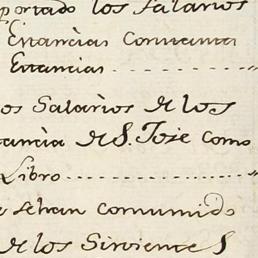 portado los Salarios
Estancias Comunta
Estancias
os Salarios de los
tancia de S. Jose como
Libro
e sehan comumido
de los Sirvientes